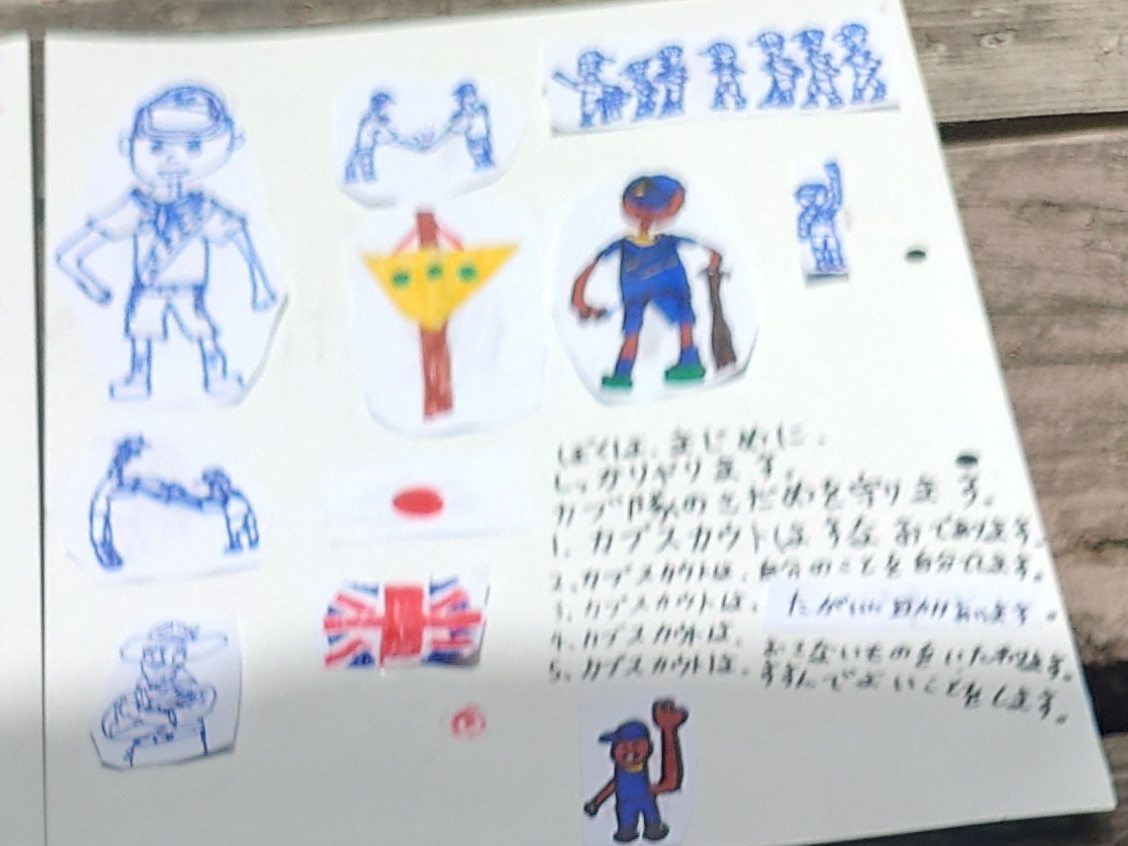 ぼくは、まじめに、
しっかりやります。
カブ隊のさだめを守ります。
1. カブスカウトはすなおであります。
2. カブスカウトは、自分のことを自分でします。
3. カブスカウトは、たがいに助けあいます。
4. カブスカウトは、おさないものをいたわります。
5. カブスカウトは、すすんでよいことをします。